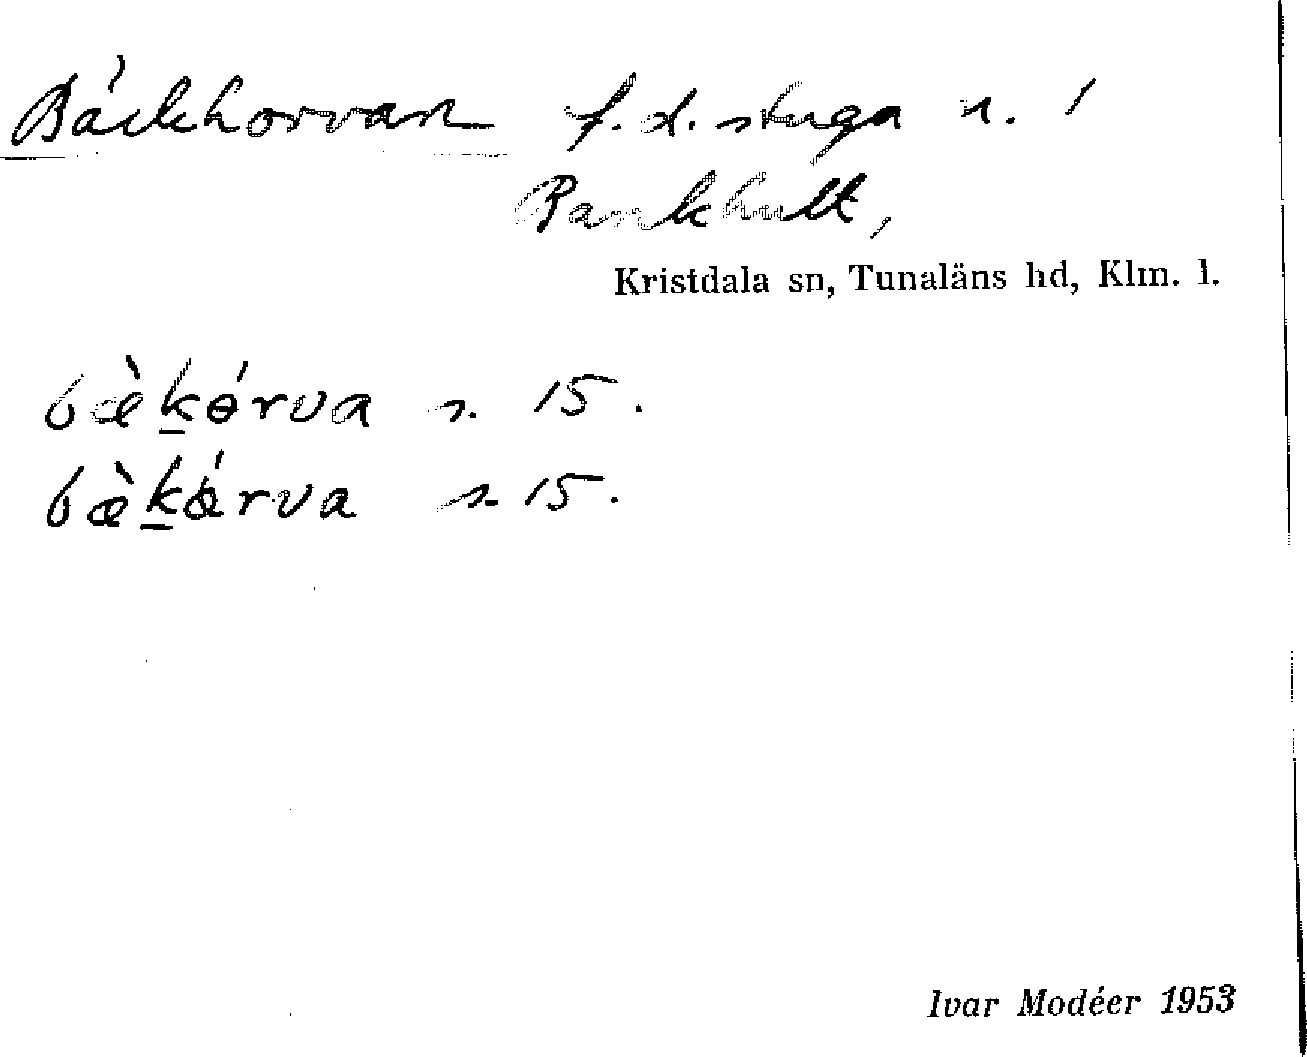 Bäckhorvan f.d. stuga u. 1
Bankhult,
Kristdala sn, Tunaläns hd, Klm. l.
bæ̀k̲ɵ́rva s. 15.
bæ̀k̲ǿrva s. 15.
Ivar Modéer 1953